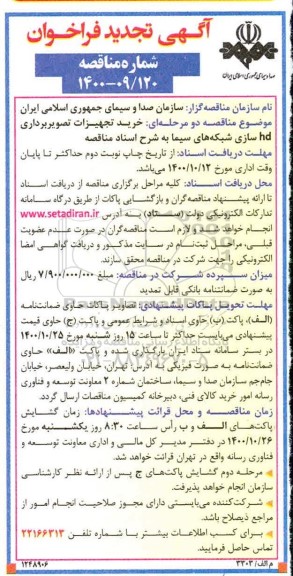 آگهی تجدید فراخوان
شماره مناقصه
۱۴۰۰-۰۹/۱۲۰
صدا و سیمای جمهوری اسلامی ایران
نام سازمان مناقصه‌گزار: سازمان صدا و سیمای جمهوری اسلامی ایران
موضوع مناقصه دو مرحله‌ای: خرید تجهیزات تصویربرداری
hd سازی شبکه‌های سیما به شرح اسناد مناقصه
مهلت دریافت اسناد: از تاریخ چاپ نوبت دوم حداکثر تا پایان
وقت اداری مورخ ۱۴۰۰/۱۰/۱۲ می‌باشد.
محل دریافت اسناد: کلیه مراحل برگزاری مناقصه از دریافت اسناد
تا ارائه پیشنهاد مناقصه‌گران و بازگشایی پاکات از طریق درگاه سامانه
تدارکات الکترونیکی دولت (ستاد) به آدرس www.setadiran.ir
انجام خواهد شد و لازم است مناقصه‌گران در صورت عدم عضویت
قبلی، مراحل ثبت‌نام در سایت مذکور و دریافت گواهی امضا
الکترونیکی را جهت شرکت در مناقصه محقق سازند.
میزان سپرده شرکت در مناقصه: مبلغ ۷/۹۰۰/۰۰۰/۰۰۰ ریال
به صورت ضمانتنامه بانکی قابل تمدید
مهلت تحویل پاکات پیشنهادی: تصاویر پاکات حاوی ضمانتنامه
(الف)، پاکت (ب) حاوی اسناد و شرایط عمومی و پاکت (ج) حاوی قیمت
پیشنهادی می‌بایست حداکثر تا ساعت ۱۵ روز شنبه مورخ ۱۴۰۰/۱۰/۲۵
در بستر سامانه ستاد ایران بارگذاری شده و پاکت «الف» حاوی
ضمانت‌نامه به صورت فیزیکی به آدرس: تهران، خیابان ولیعصر، خیابان
جام‌جم سازمان صدا و سیما، ساختمان شماره ۲ معاونت توسعه و فناوری
رسانه امور خرید کالای فنی، دبیرخانه کمیسیون مناقصات ارسال گردد.
زمان مناقصه و محل قرائت پیشنهادها: زمان گشایش
پاکت‌های الف و ب رأس ساعت ۸:۳۰ روز یکشنبه مورخ
۱۴۰۰/۱۰/۲۶ در دفتر مدیر کل مالی و اداری معاونت توسعه و
فناوری رسانه واقع در تهران قرائت خواهد شد.
مرحله دوم گشایش پاکت‌های ج پس از ارائه نظر کارشناسی
سازمان انجام خواهد پذیرفت.
شرکت‌کننده می‌بایستی دارای مجوز صلاحیت انجام امور از
مراجع ذیصلاح باشد.
برای کسب اطلاعات بیشتر با شماره تلفن ۲۲۱۶۶۳۱۳
تماس حاصل فرمایید.
م الف/ ۳۳۰۳
۱۲۴۸۹۰۶